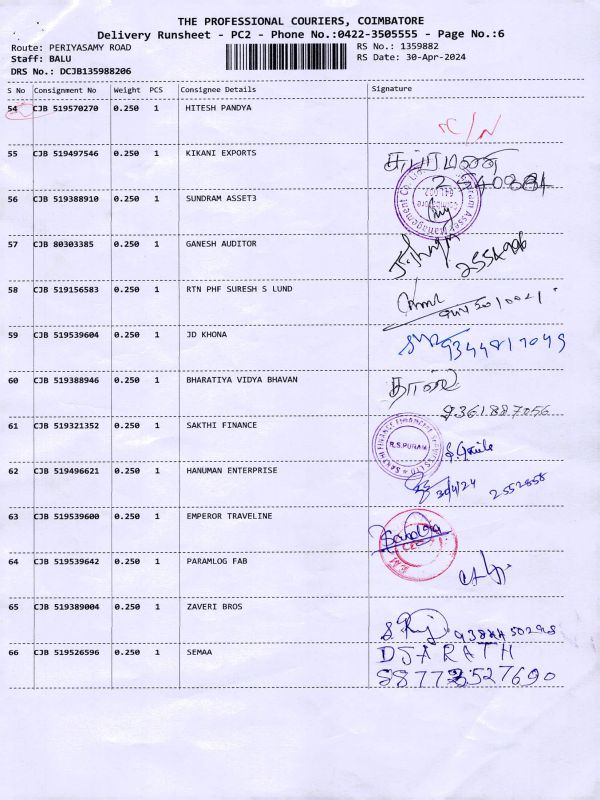 THE PROFESSIONAL COURIERS, COIMBATORE
Delivery Runsheet - PC2 - Phone No.:0422-3505555 - Page No.:6
Route: PERIYASAMY ROAD RS No.: 1359882
Staff: BALU RS Date: 30-Apr-2024
DRS No.: DCJB135988206
S No Consignment No Weight PCS Consignee Details Signature
54 CJB 519570270 0.250 1 HITESH PANDYA
55 CJB 519497546 0.250 1 KIKANI EXPORTS
56 CJB 519388910 0.250 1 SUNDRAM ASSET3
57 CJB 80303385 0.250 1 GANESH AUDITOR
58 CJB 519156583 0.250 1 RTN PHF SURESH S LUND
59 CJB 519539604 0.250 1 JD KHONA 9344817049
60 CJB 519388946 0.250 1 BHARATIYA VIDYA BHAVAN
9361887056
61 CJB 519321352 0.250 1 SAKTHI FINANCE R.S.PURAM
62 CJB 519496621 0.250 1 HANUMAN ENTERPRISE 30/4/24 2552858
63 CJB 519539600 0.250 1 EMPEROR TRAVELINE
64 CJB 519539642 0.250 1 PARAMLOG FAB
65 CJB 519389004 0.250 1 ZAVERI BROS
66 CJB 519526596 0.250 1 SEMAA DSARATH